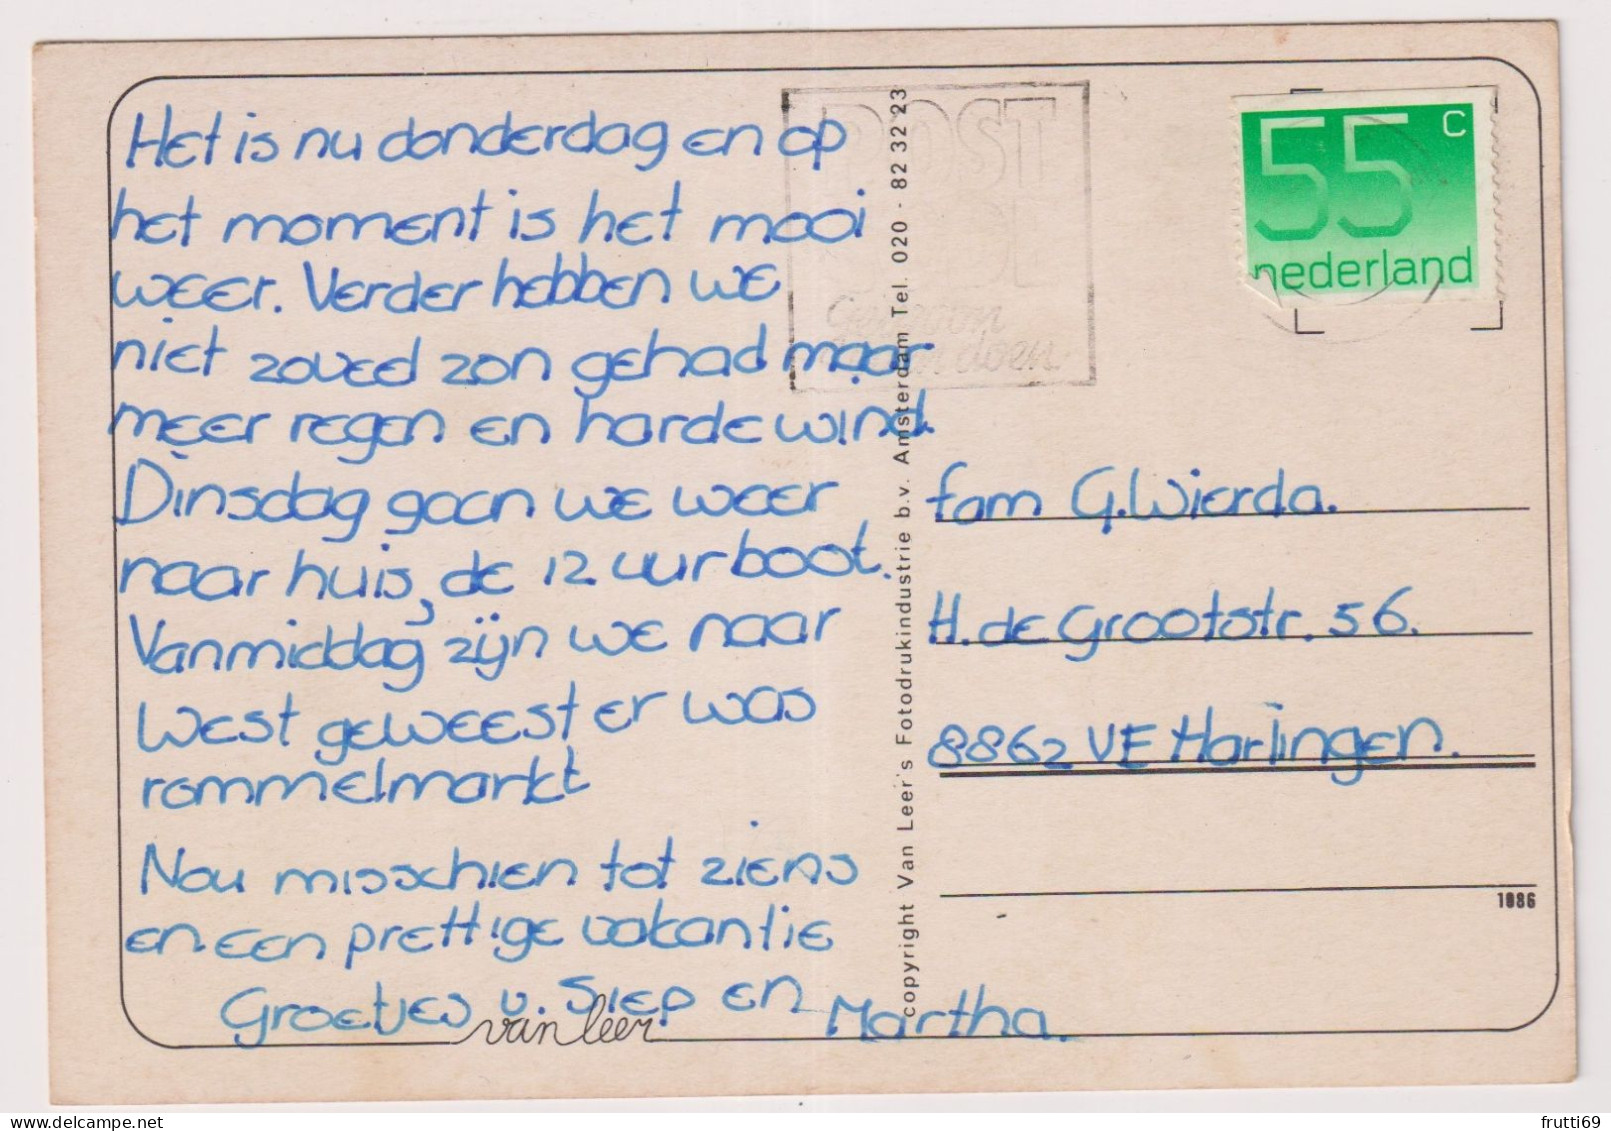 Het is nu donderdag en op
het moment is het mooi
weer. Verder hebben we
niet zoveel zon gehad maar
meer regen en harde wind.
Dinsdag gaan we weer
naar huis, de 12 uur boot.
Vanmiddag zijn we naar
West geweest er was
rommelmarkt
Nou misschien tot ziens
en een prettige vakantie
Groetjes v. Siep en Martha.
van leer
copyright Van Leer's Fotodrukindustrie b.v. Amsterdam Tel. 020 - 82 32 23
POST
Gewoon
doen
55 c
nederland
fam G. Wierda.
H. de Grootstr. 56.
8862 VE Harlingen.
1086
frutti69